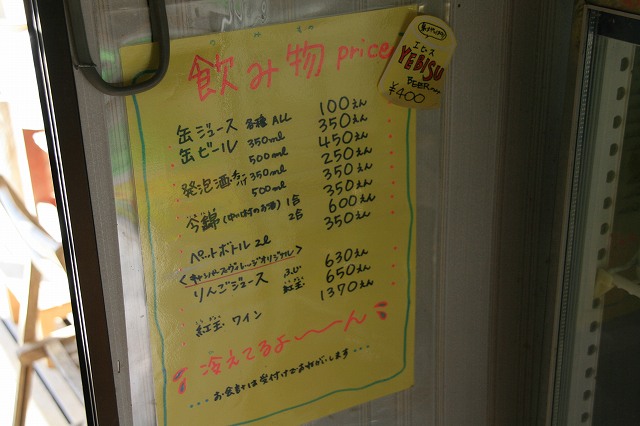 飲み物 price
エビス
YEBISU
BEER
¥400
缶ジュース 各種 ALL 100えん
缶ビール 350ml 350えん
500ml 450えん
発泡酒 350ml 250えん
500ml 350えん
今錦 (中川村のお酒) 1合 350えん
2合 600えん
ペットボトル 2l 350えん
<キャンパースヴィレッジオリジナル>
りんごジュース ふじ 630えん
紅玉 650えん
紅玉 ワイン 1370えん
冷えてるよ〜〜ん
・・・お会計は受付けでお願いします・・・